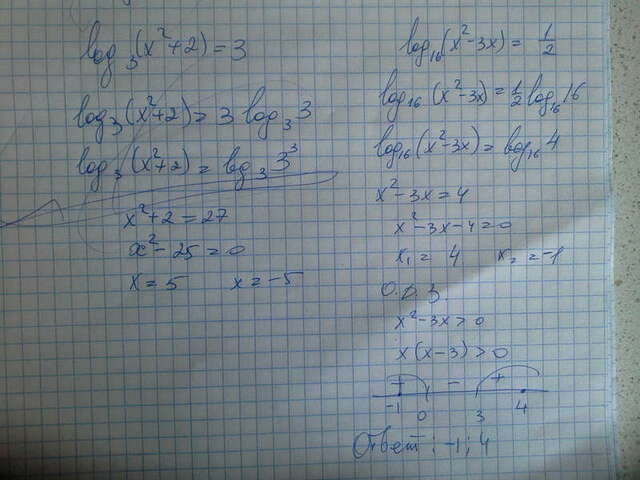 log₃(x²+2) = 3
log₃(x²+2) = 3 log₃3
log₃(x²+2) = log₃3³
x²+2 = 27
x²-25 = 0
x = 5 x = -5
log₁₆(x²-3x) = 1/2
log₁₆(x²-3x) = 1/2 log₁₆16
log₁₆(x²-3x) = log₁₆4
x²-3x = 4
x²-3x-4 = 0
x₁ = 4 x₂ = -1
О.Д.З.
x²-3x > 0
x(x-3) > 0
+ - +
-1 0 3 4
Ответ: -1; 4